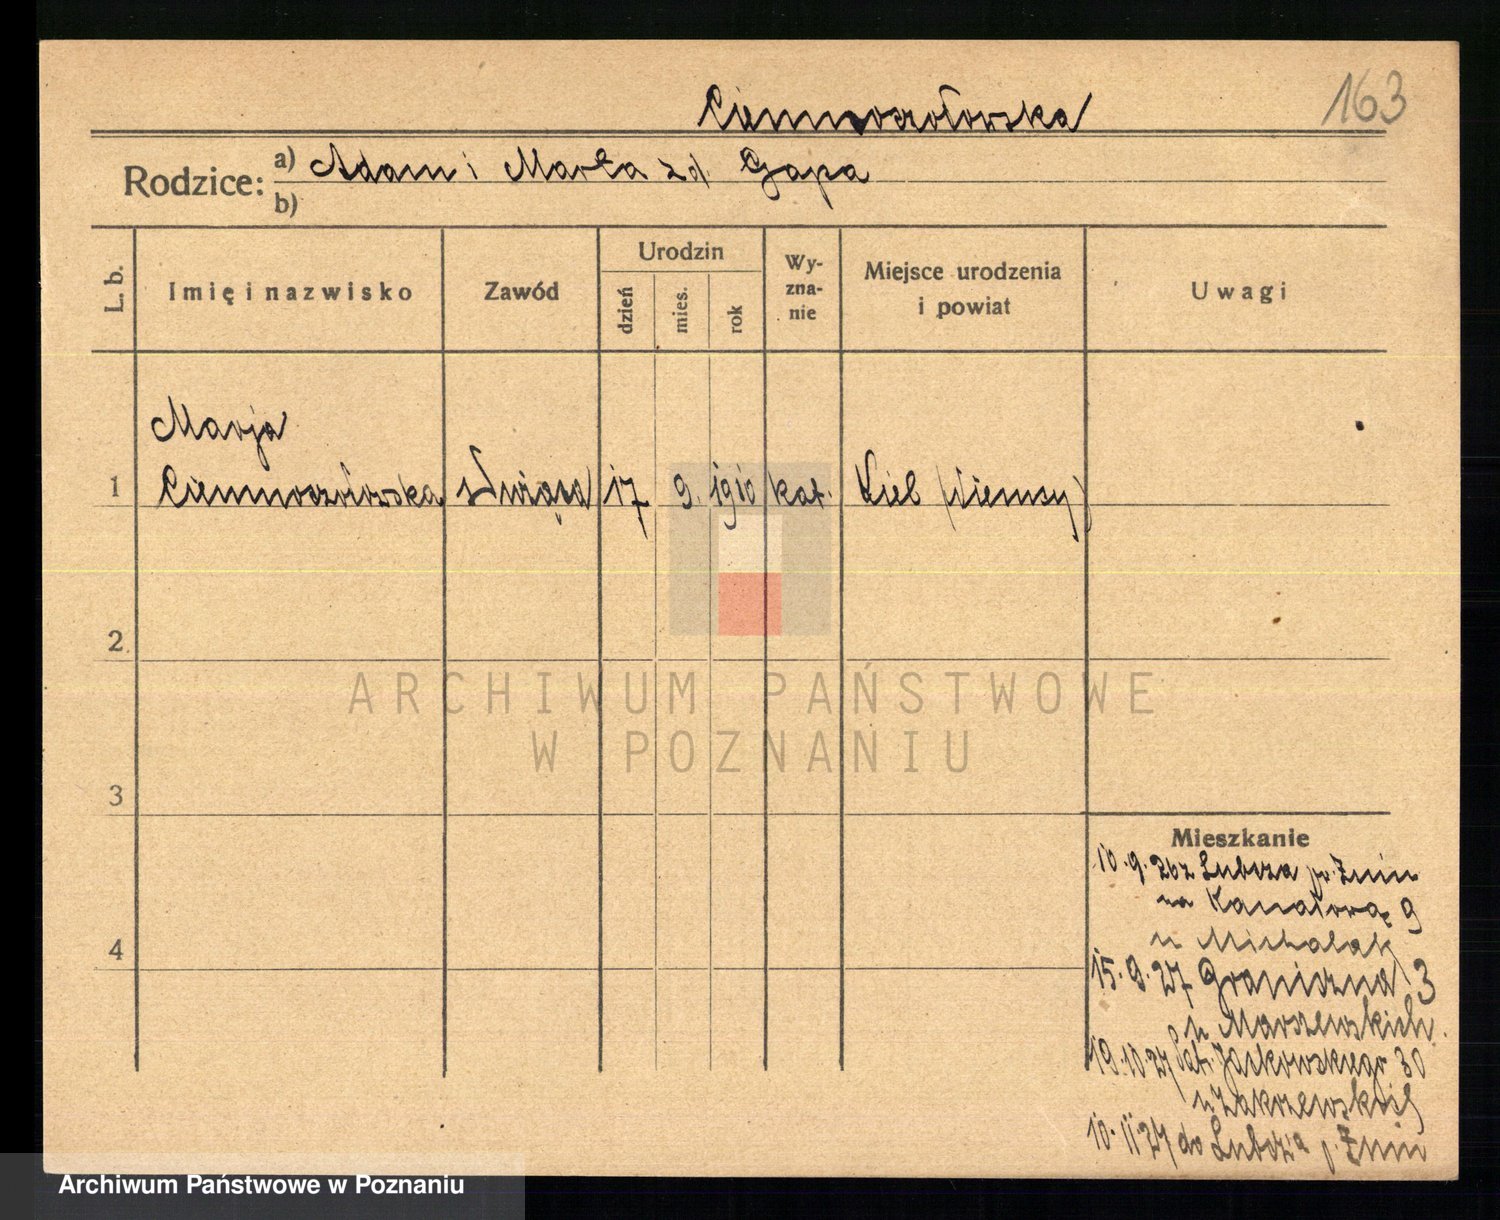 163
Ciemnoszołowska
Rodzice: a) Adam i Marta zd. Gapa
b)
L. b.
Imię i nazwisko
Zawód
Urodzin
dzień
mies.
rok
Wy-
zna-
nie
Miejsce urodzenia
i powiat
Uwagi
Marja
1 Ciemnoszołowska służąca 17 9. 1910 kat. Kiel (Niemcy)
2
3
4
Mieszkanie
10.9.26 z Lubcza p. Żnin
na Kanałową 9
u Michalak
15.9.27 Graniczna 3
u Marszewskich
19.10.27 Jackowskiego 30
u Zakrzewskich
10.11.27 do Lubcza p. Żnin
ARCHIWUM PAŃSTWOWE
W POZNANIU
Archiwum Państwowe w Poznaniu